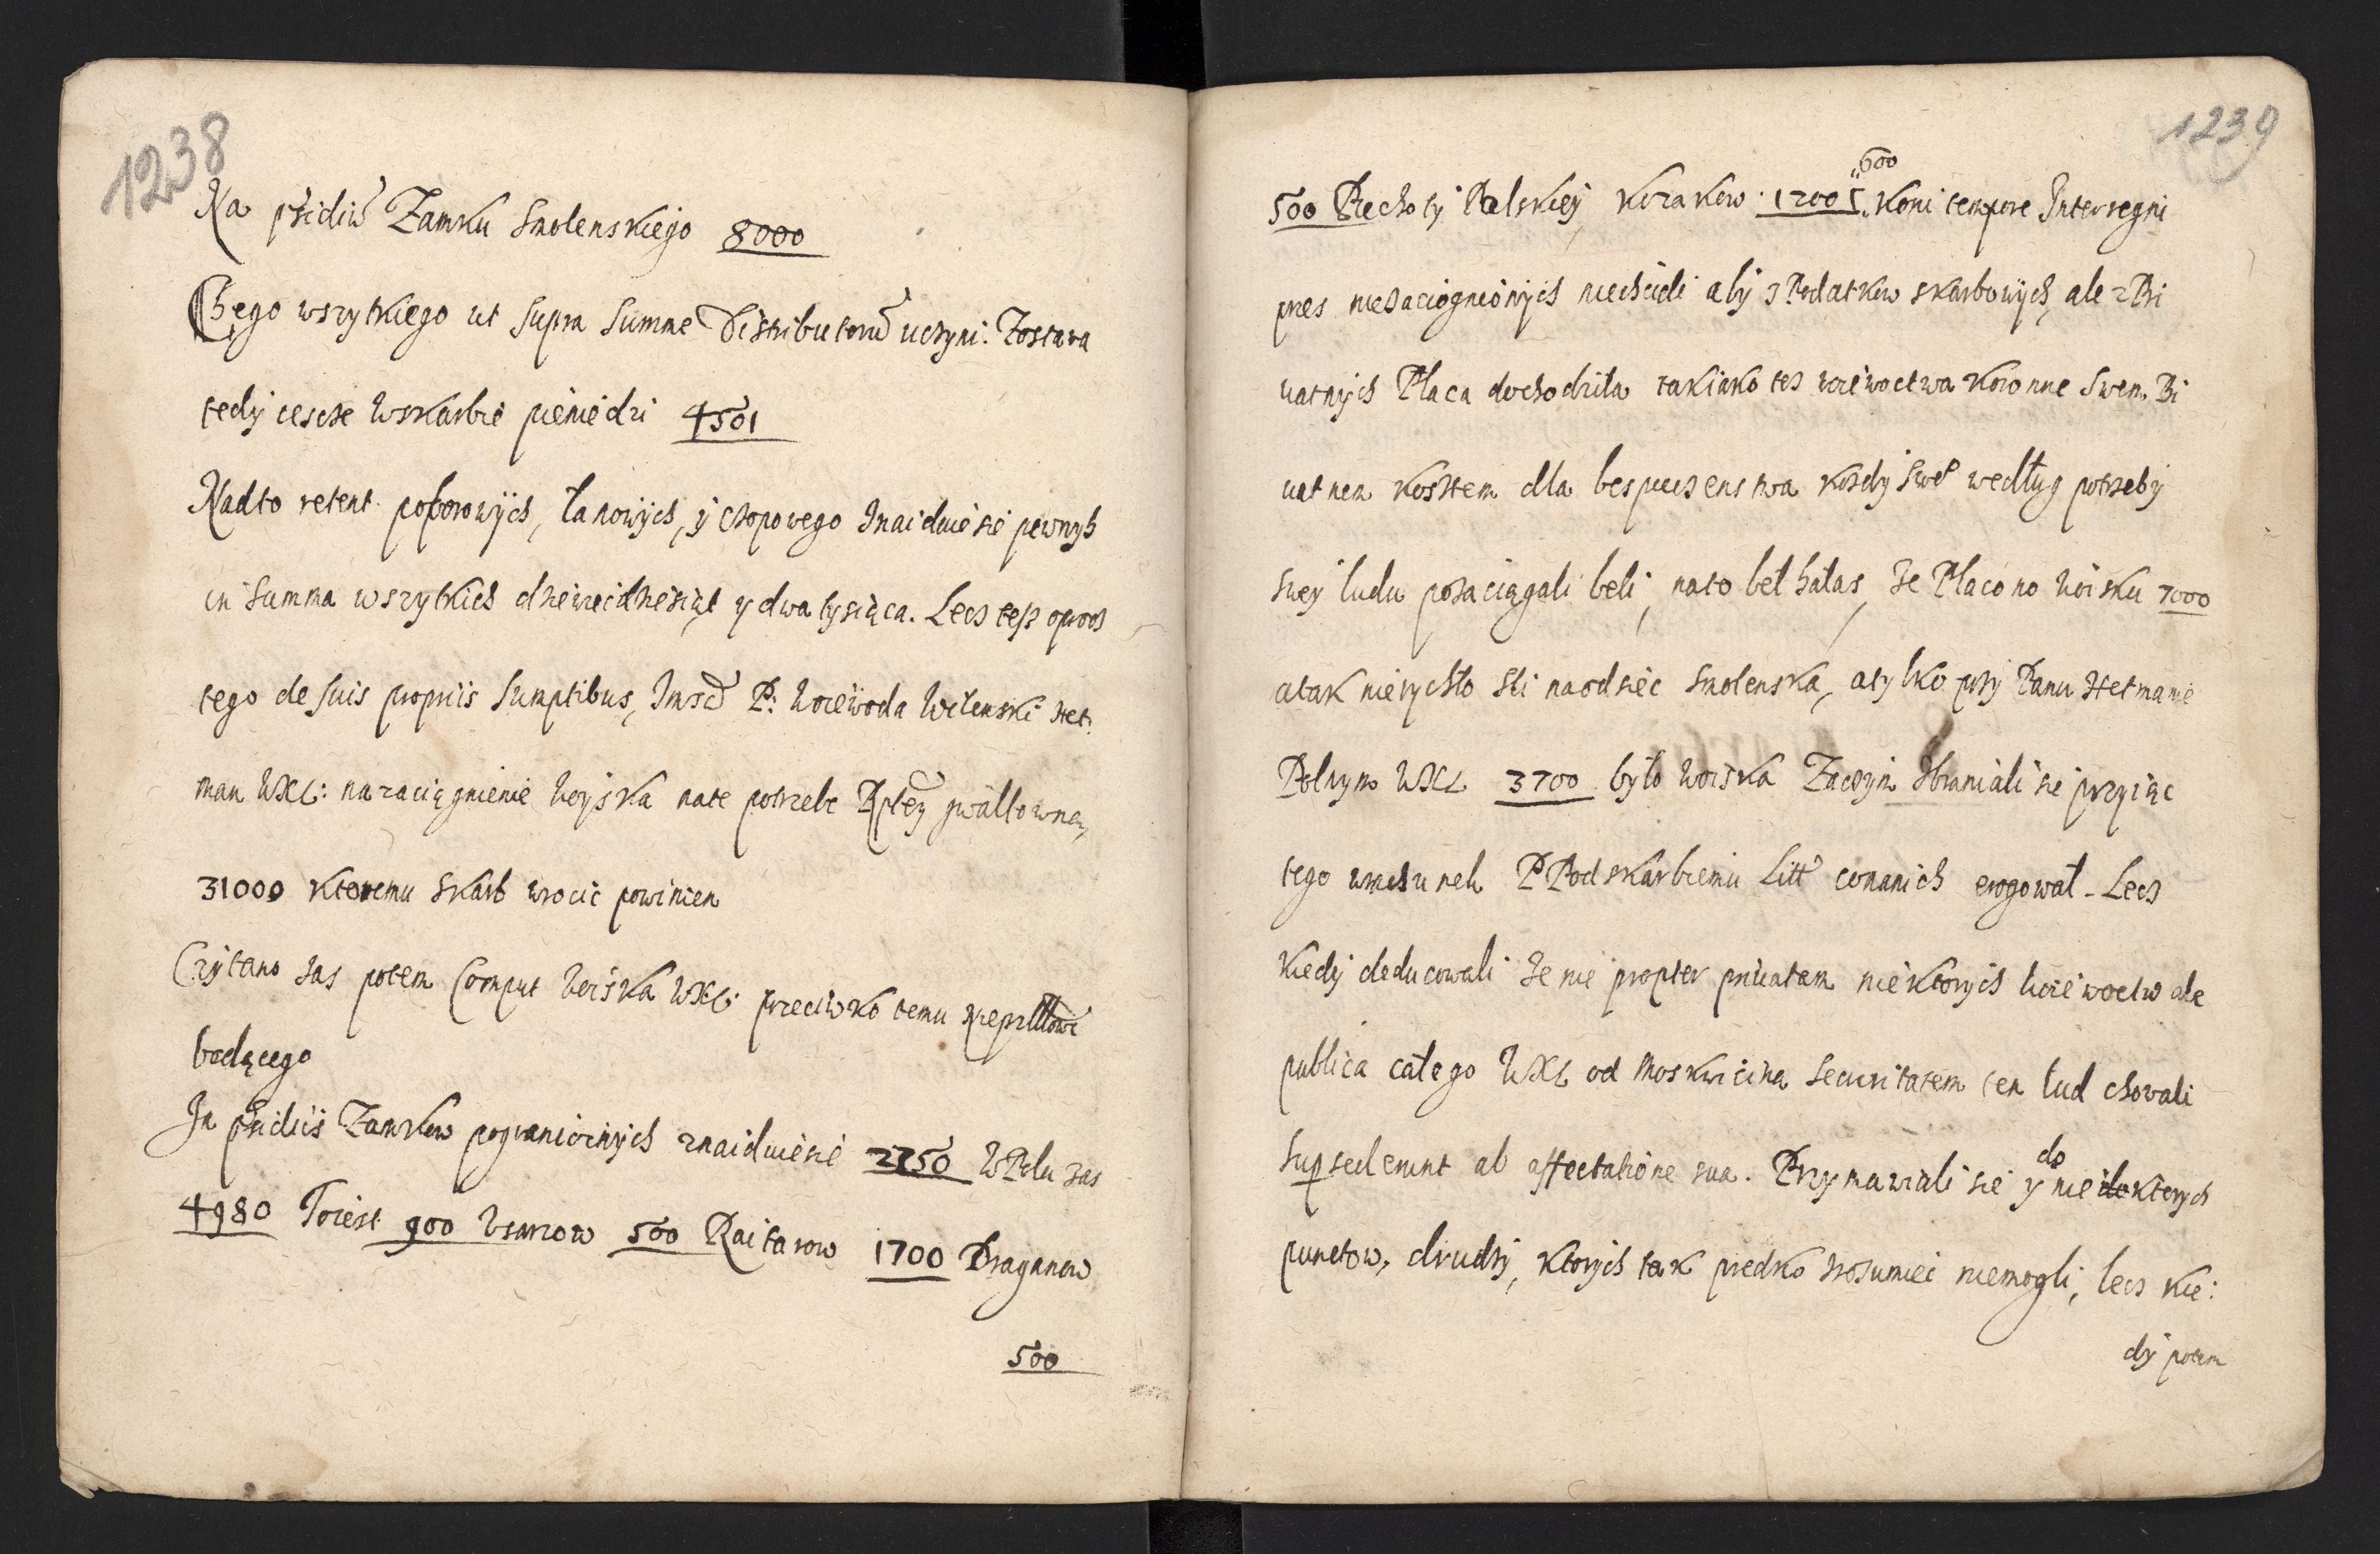 1238
Na psidiũ Zamku Smolenskiego 8000
Czego wszytkiego ut supra summe Distributorũ uczyni. Zostawa
tedy iescze w skarbie pieniedzi 4501
Nadto retent poborowych, łanowych, y czopowego znaiduie sie pewnych
in summa wszytkich dziewiedziesiąt y dwa tysiąca. Lecz tesz oprocz
tego de suis propriis sumptibus, Imsć P. Woiewoda Wilenski Het:
man WXL: na zaciągnienie Woyska na te potrzebe Rptey gwałtowney,
31000 ktoremu skarb wrocic powinien
Czytano zas potem Comput Woiska WXL: przeciwko temu
bedącego
In psidiis Zamkow pogranicznych znaiduie sie 2750 W Polu zas
4980 To iest 900 Usarzow 500 Raitarow 1700 Draganow
500
1239
500 Piechoty Polskiey Kozakow 1200 600 koni tempore Interregni
pres nie zaciągnionych niechcieli aby z Podatkow skarbowych, ale z Pri
uatnych Płaca dochodziła tak iako tez woiewoctwa koronne swem Pri
uatnem kosztem dla bespieczenstwa kozdy swe według potrzeby
swey ludu pozaciągali beli, na to beł hałas, ze Płacono Woisku 7000
a tak nierychło szli na odsiec Smolenska, a tylko przy Panu Hetmanie
Polnym WXL 3700 było woiska Zaczym zbraniali sie przyiąc
tego wrachunek P Podskarbiemu Litt co na nich erogował. Lecz
kiedy deducowali ze nie propter priuatam niektorych woiewoctw ale
publica całego WXL od Moskwicina securitatem ten lud chowali
supsederunt ab affectatione sua. Przymawiali sie y do niektorych
punctow, drudzy, ktorych tak predko zrozumiec niemogli, lecz kie:
dy potem